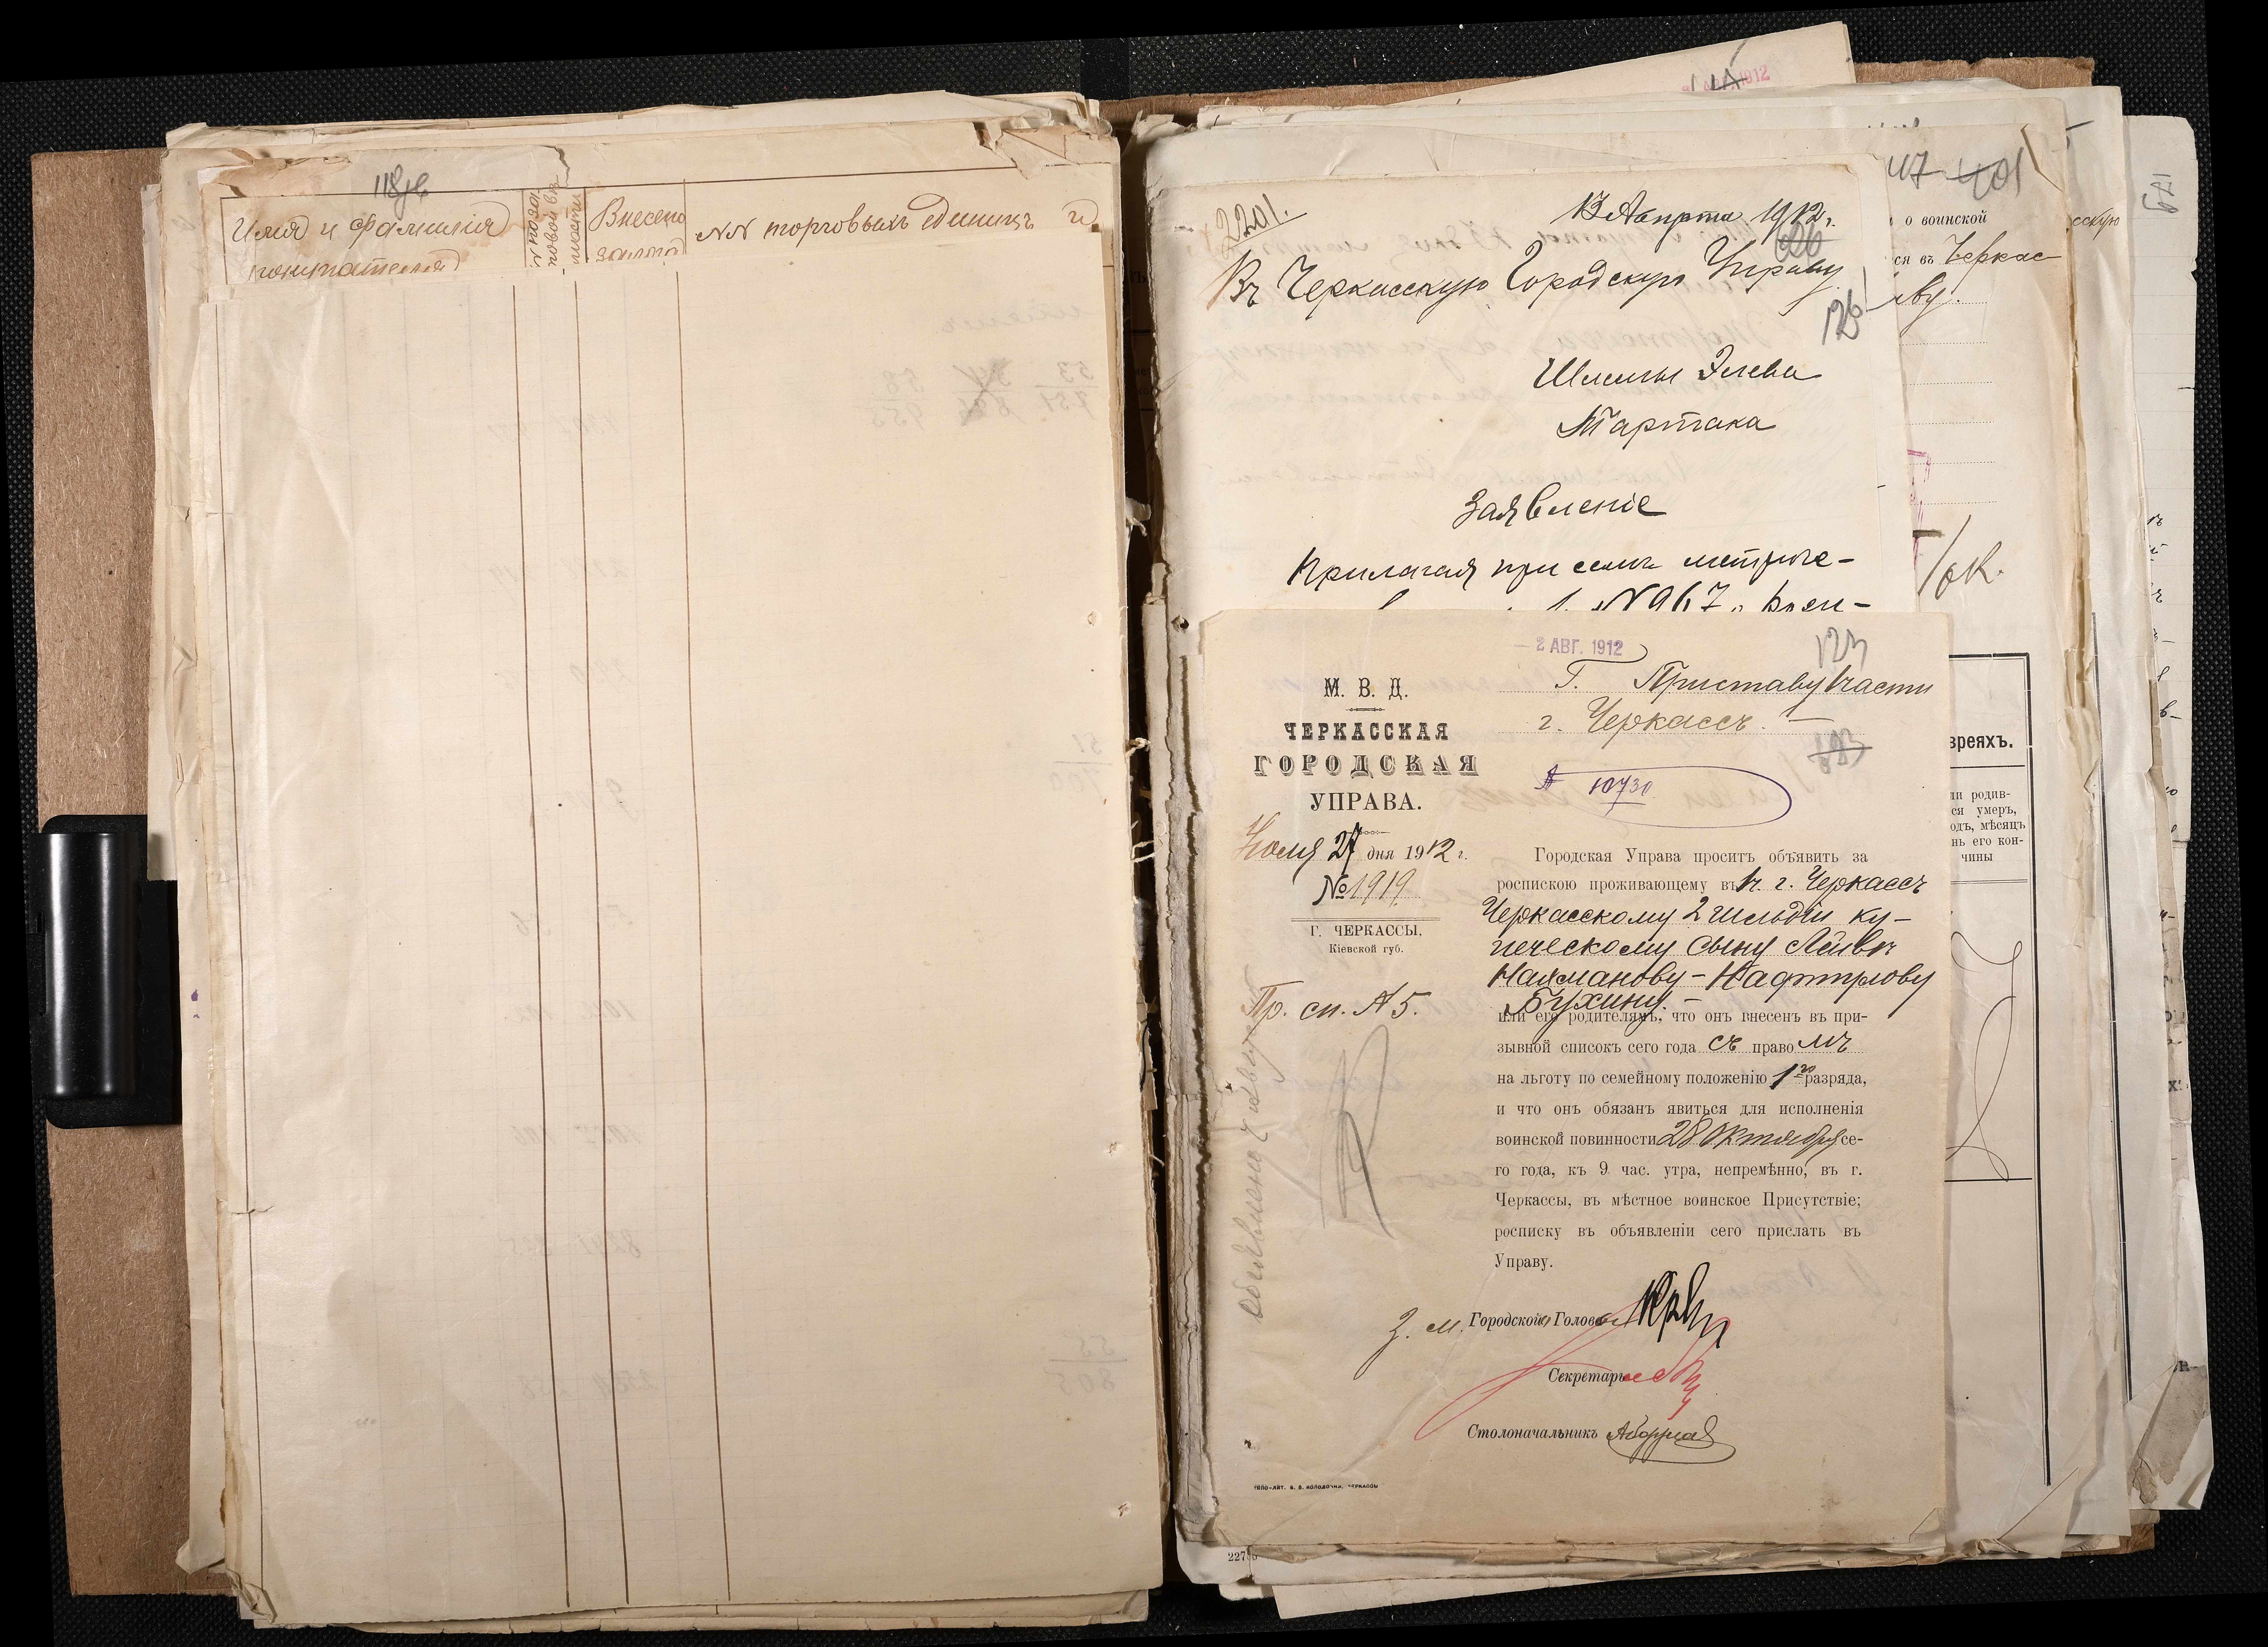 118
Имя и фамилія
покупателя
Внесено
залога
NN торговыхъ единицъ и
2201.
13 Марта 1912 г.
Въ Черкасскую Городскую Управу
126
Шлемы Элева
Тартака
Заявленіе
Прилагая при семъ метриче-
№ 967
47 401
о воинской
ся въ Черкас-
ву.
сскую
129
/ок.
1912
2 АВГ. 1912
123
Г. Приставу 1 части
г. Черкассъ. —
10730
М. В. Д.
ЧЕРКАССКАЯ
ГОРОДСКАЯ
УПРАВА.
Іюля 27 дня 1912 г.
№ 1919.
Г. ЧЕРКАССЫ,
Кіевской губ.
Пр. сп. № 5.
Городская Управа проситъ объявить за
роспискою проживающему въ г. Черкассъ
Черкасскому 2 гильдіи ку-
печескому сыну Лейвъ
Нахманову-Нафтулову
Бухину. —
или его родителямъ, что онъ внесенъ въ при-
зывной списокъ сего года съ правомъ
на льготу по семейному положенію 1го разряда,
и что онъ обязанъ явиться для исполненія
воинской повинности 28 Октября се-
го года, къ 9 час. утра, непремѣнно, въ г.
Черкассы, въ мѣстное воинское Присутствіе;
росписку въ объявленіи сего прислать въ
Управу.
З. м. Городского Головы
Секретарь
Столоначальникъ
ТИПО-ЛИТ. В. В. КОЛОДОЧКИ, ЧЕРКАССЫ
вреяхъ.
ли родив-
ся умеръ,
одъ, мѣсяцъ
нь его кон-
чины